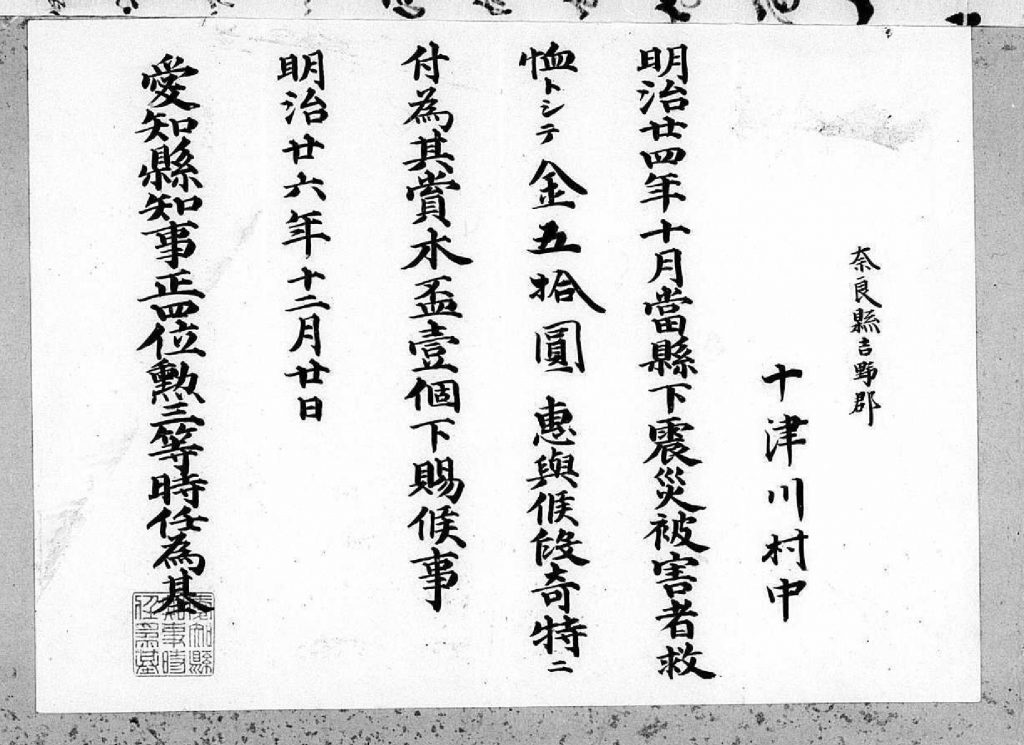 奈良縣吉野郡
十津川村中
明治廿四年十月當縣下震災被害者救
恤トシテ金五拾圓惠與候段奇特ニ
付為其賞木盃壹個下賜候事
明治廿六年十二月廿日
愛知縣知事正四位勲三等時任為基
愛知縣
知事時
任為基